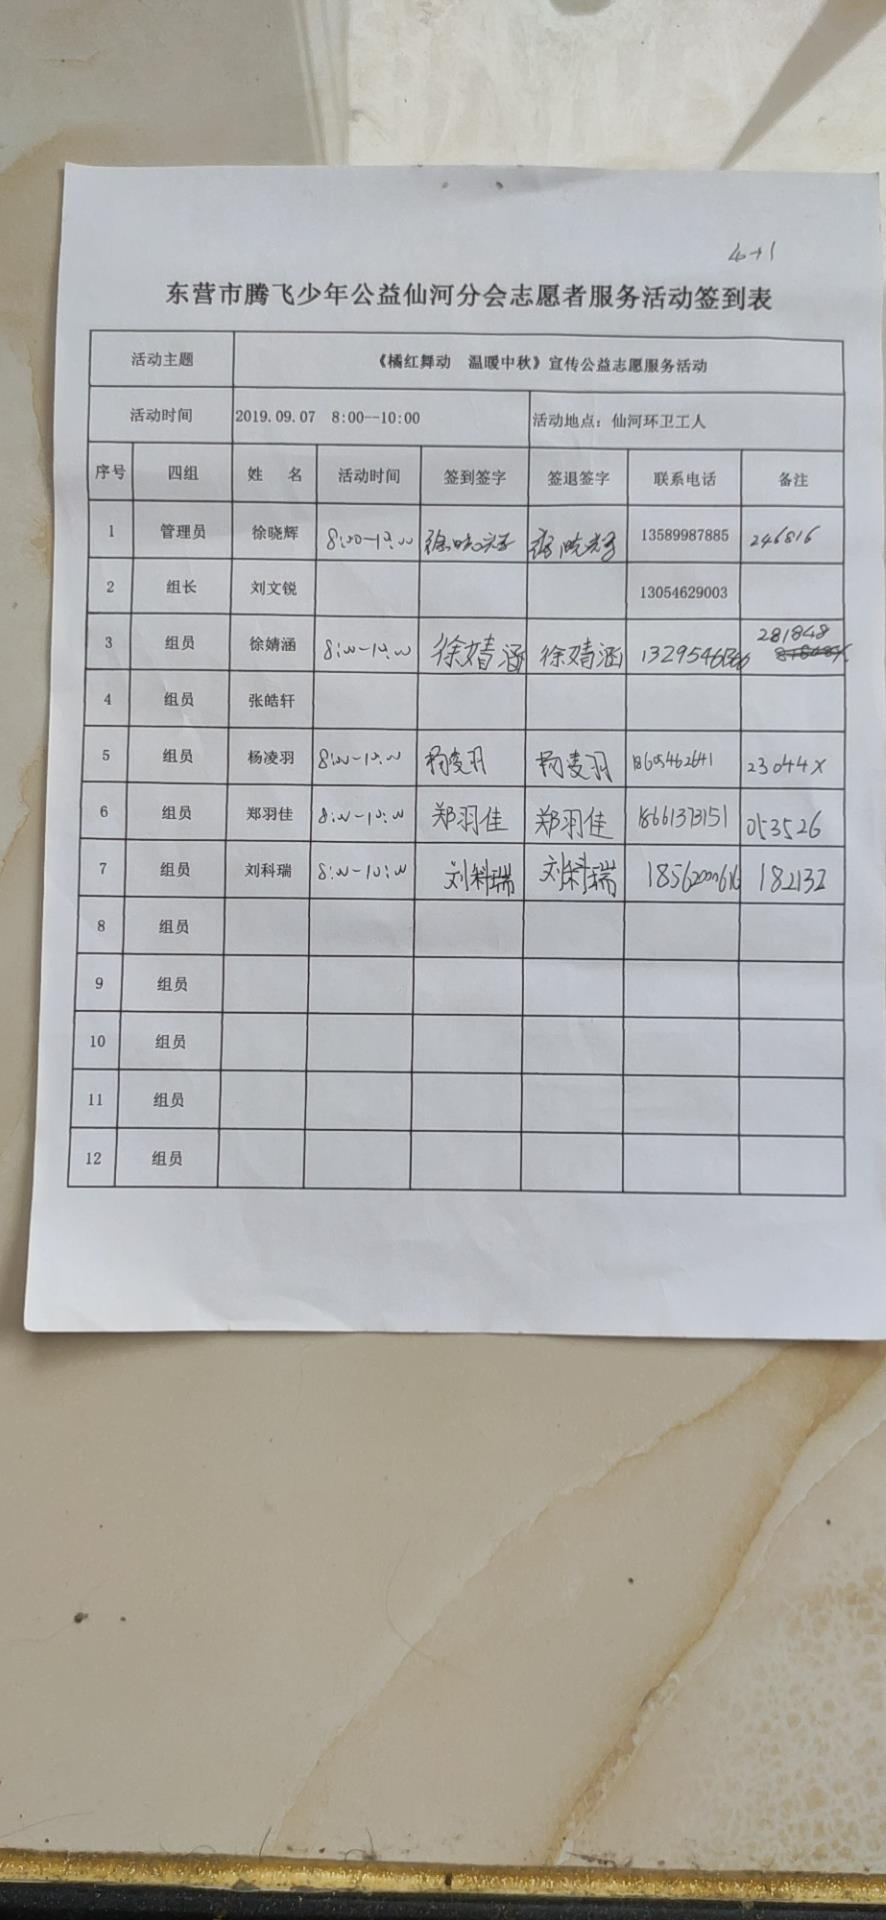 4+1
东营市腾飞少年公益仙河分会志愿者服务活动签到表
活动主题 《橘红舞动 温暖中秋》宣传公益志愿服务活动
活动时间 2019.09.07 8:00--10:00 活动地点：仙河环卫工人
序号 四组 姓 名 活动时间 签到签字 签退签字 联系电话 备注
1 管理员 徐晓辉 8:00-10:00 徐晓辉 徐晓辉 13589987885 246816
2 组长 刘文锐 13054629003
3 组员 徐婧涵 8:00-10:00 徐婧涵 徐婧涵 281848
4 组员 张皓轩
5 组员 杨凌羽 8:00-10:00 杨凌羽 杨凌羽 23044X
6 组员 郑羽佳 8:00-10:00 郑羽佳 郑羽佳 18661373151 053526
7 组员 刘科瑞 8:00-10:00 刘科瑞 刘科瑞 182132
8 组员
9 组员
10 组员
11 组员
12 组员